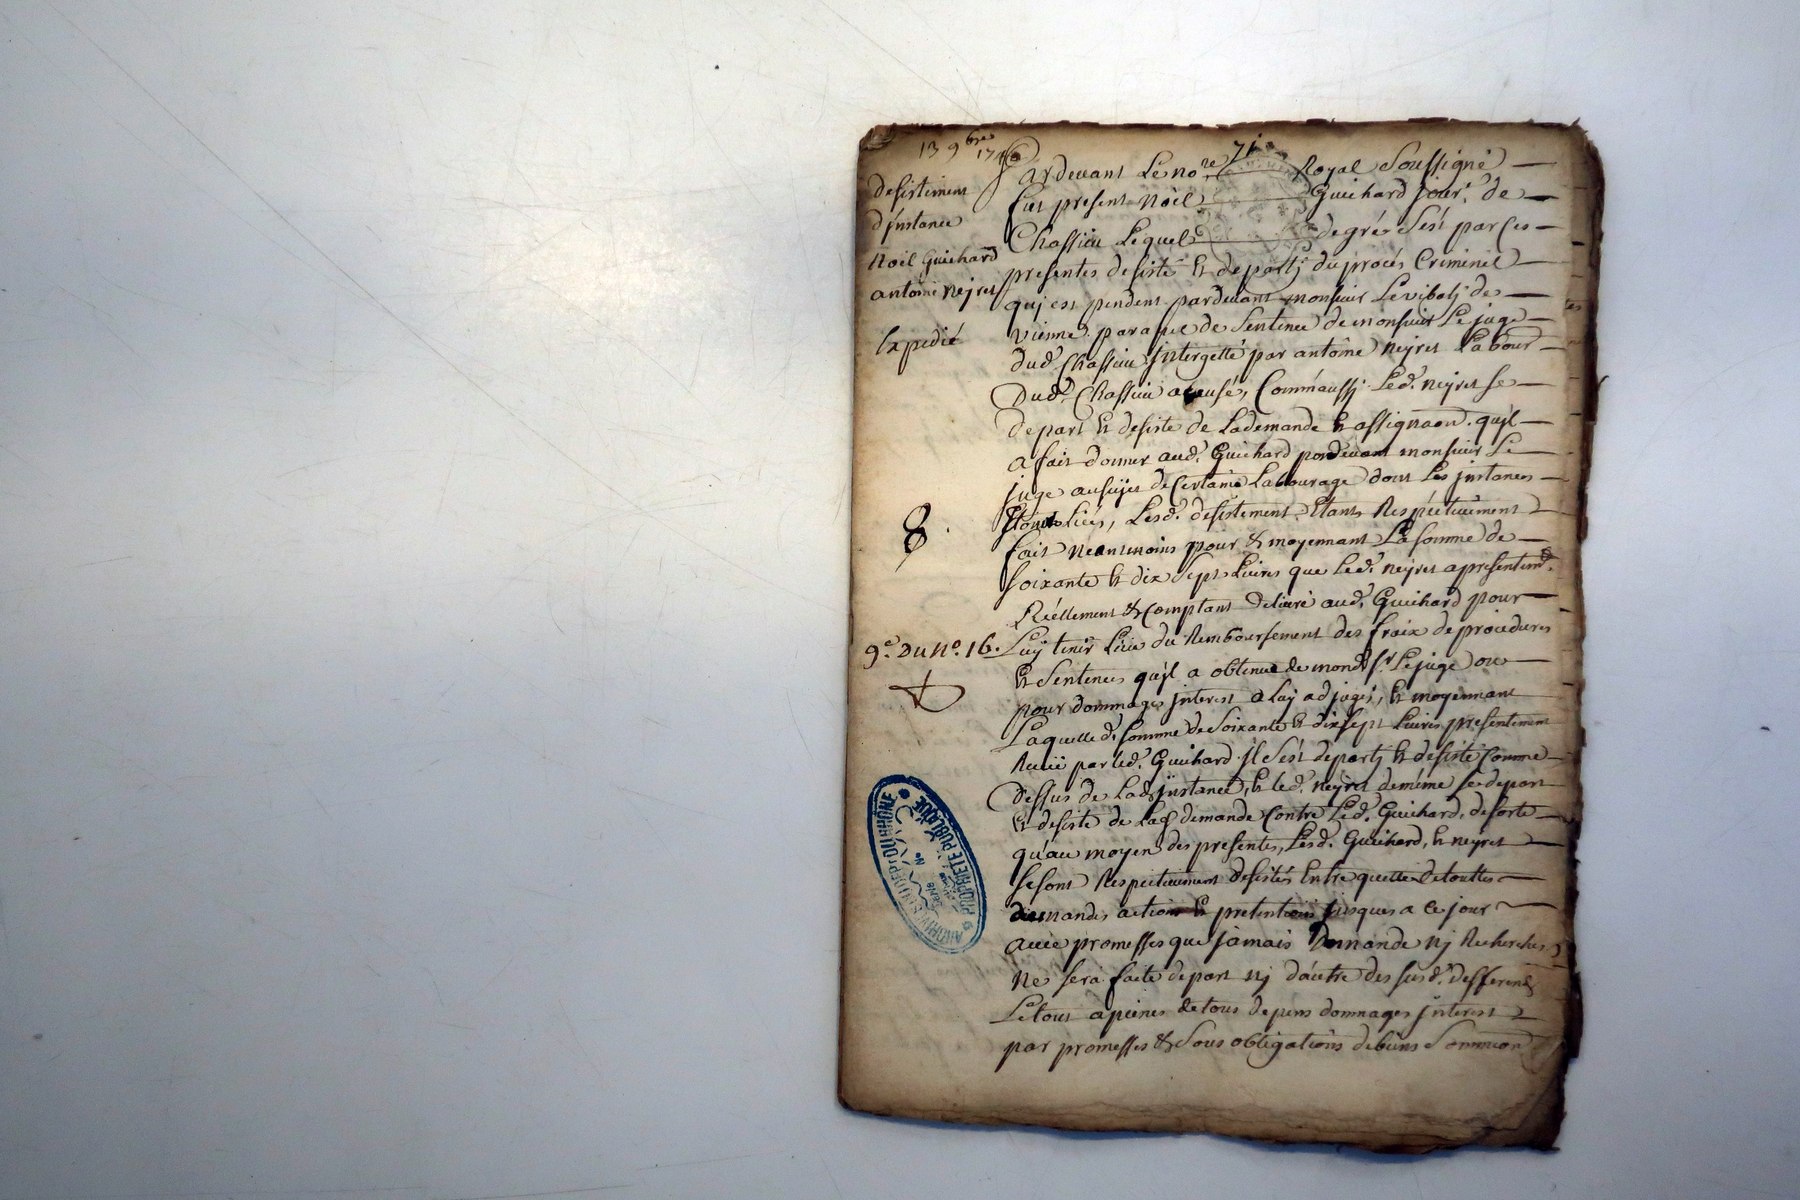 13 9bre
71
desistement
d'jnstance
Noël Guichard
antoine Nejret
Expedié
8
9e. Du No. 16.
Pardevant Le nore Royal Soussigné
fut present Noël Guichard jour. de
Chassieu Lequel de gré s'est par ces
presentes desisté & departj du procés Criminel
quj est pendent pardevant monsieur Levibalj de
vienne par apel de Sentence de monsieur Le juge
dud. Chassieu jntergetté par antoine nejret Labour
Dud. Chassieu acusé, Comm'aussj Led. nejret se
depart & desiste de La demande & assignaon. qujl
a fait donner aud. Guichard pardevant monsieur Le
juge au sujet de Certaine Labourage dont Les jnstances
Liées, Lesd. desistement Etants Respectivement
fait neantmoins pour & moyennant La somme de
soixante & dix sept Livres que Led. nejret a presentemt.
Réellement & Comptant delivré aud. Guichard pour
Luy tenir Lieu du Remboursement des fraix de procedures
& Sentences qujl a obtenue de mond. sr. Le juge ou
pour dommages jnterest a Luy adjugés, & moyennant
Laquelle d. somme de soixante & dix sept Livres presentement
Receüe par Led. Guichard jl s'est departj & desisté Comme
dessus de Lad. jnstance, & Led. nejret de méme se depart
& desiste de Lad. demande Contre Led. Guichard, desorte
qu'au moyen des presentes, Lesd. Guichard, & nejret
se sont Respectivement desistés & de touttes
demandes action & pretentions jusques a ce jour
avec promesses que jamais Demande nj Recherches
ne sera faite de part nj d'autre des susd. differends
Le tout a peines de tous depens dommages jnterest
par promesses & sous obligations de biens
ARCHIVES DU DEPT DU RHÔNE
PROPRIÉTÉ PUBLIQUE
Série
No